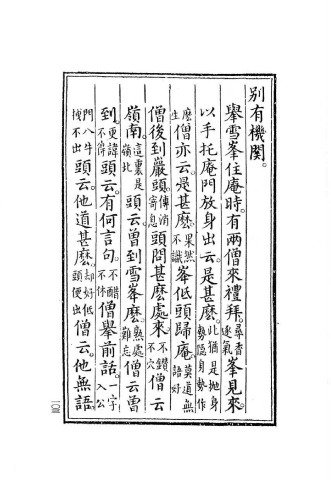 別有機関。
舉雪峯住庵時。有兩僧來禮拜。尋香逐氣峯見來。
以手托庵門放身出云。是甚麽。此猶是拋身勢隱身勢作
麽生僧亦云。是甚麽。果然不識峯低頭歸庵。莫道無語好
僧後到巖頭。傳消寄息頭問甚麽處來。不鑽不穴僧云
嶺南。這裏是嶺北頭云曾到雪峯麽。熟處難忘僧云曾
到。更諱不得頭云。有何言句。不醋不休僧舉前話。一字入公
門八牛拽不出頭云。他道甚麽。却好低頭便出僧云。他無語